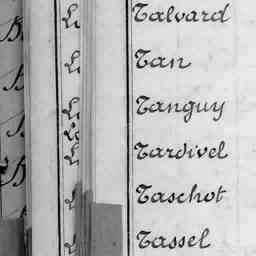 Talvard
Tan
Tanguy
Tardivel
Taschot
Tassel